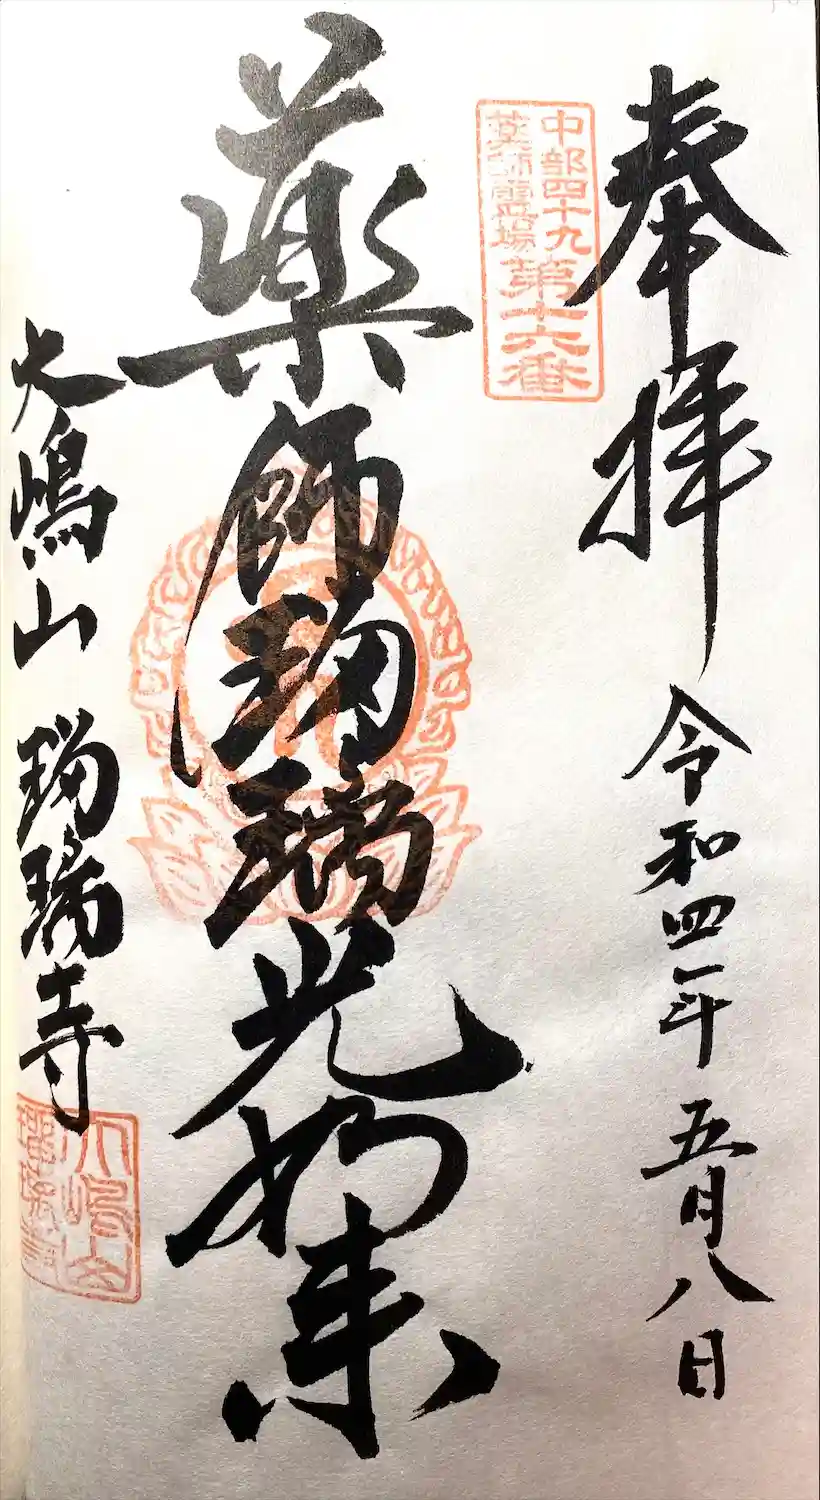 奉拝 令和四年五月八日
中部四十九
薬師霊場
第十六番
薬師瑠璃光如来
大嶋山 瑠璃寺
大嶋山
瑠璃寺